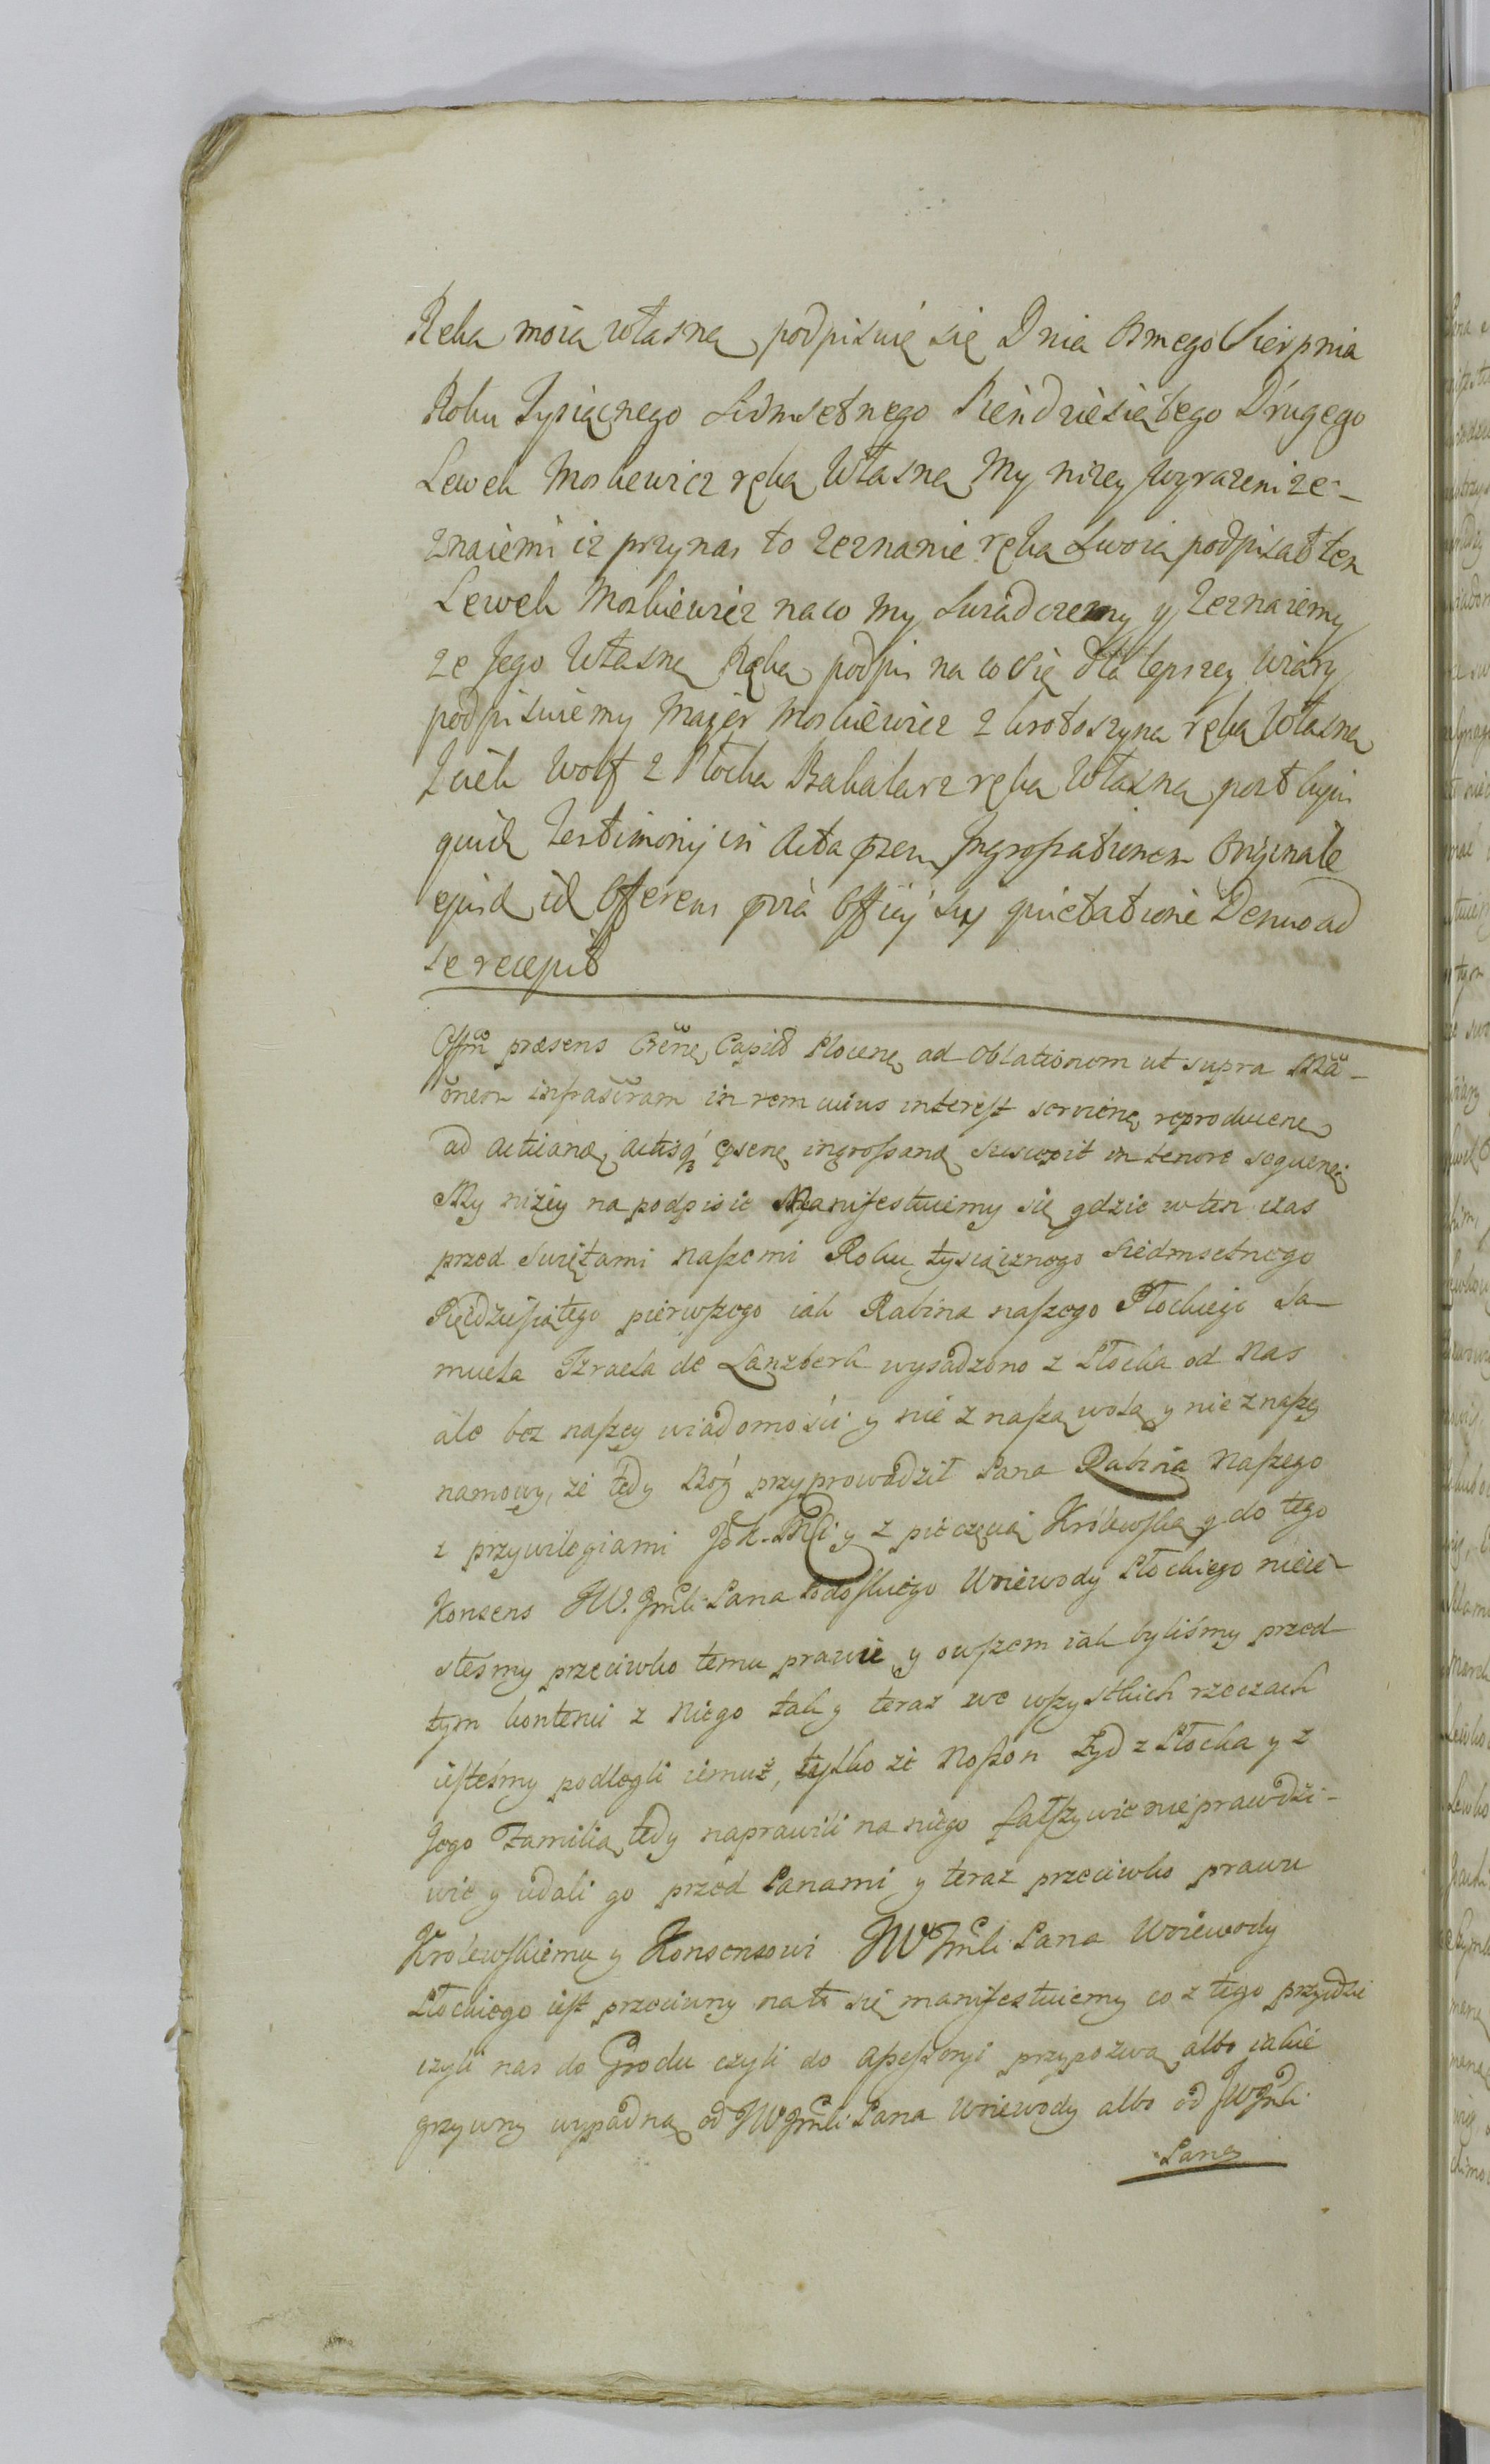 Ręką moią własną podpisuię się Dnia Osmego Sierpnia
Roku Tysiącnego Sidmsetnego Pieńdziesiątego Drugego
Lewek Moskiewicz ręką Własną My niżey Wyrażeni ze-
znaiemi iz przynas to zeznanie ręką swoią podpisał ten
Lewek Moskiewicz naco my Swiadczemy y Zeznaiemy
ze Jego Własną Ręką podpis na co się dla lepszey wiary
podpisuiemy Majer Moskiewicz z krotoszyna ręką Własną
Jcek Wolf z Płocka Bakałarz ręką Własną post cujus
quid Testimonij in Acta præn Ingrossationem Originale
ejusd id Offerens præ Officij sui quietatione Denuo ad
se recepit
Offm præsens Crẽne Capitł Plocen ad Oblationem ut supra Mã-
õnem infrascram in rem cuius interest servien reproducen
ad acticand actisq́ p̱sen ingrossand suscepit in tenore sequenti
My niżey na podpisie Manifestuiemy się gdzie w ten czas
przed swiętami naszemi Roku tysiącznego siedmsetnego
Pięcdziesiątego pierwszego iak Rabina naszego Płockiego Sa-
muela Izraela de Lanzberk wysadzono z Płocka od Nas
ale bez naszey wiadomości y nie z naszą wolą y nie z naszey
namowy, że tedy Bóg przyprowadził Pana Rabina Naszego
z przywilegiami JoK. Mci y z pieczęcią Królewską y do tego
Konsens JW. Jmci Pana Podoskiego Woiewody Płockiego nieie-
stesmy przeciwko temu prawie y owszem iak byliśmy przed
tym kontenci z Niego tak y teraz we wszystkich rzeczach
iesteśmy podlegli iemuż, tylko że Noszon Żyd z Płocka y z
Jego Familią tedy naprawili na niego fałszywie nieprawdzi-
wie y udali go przed Panami y teraz przeciwko prawu
Krolewskiemu y Konsensowi JW Jmci Pana Woiewody
Płockiego iest przeciwny na to się manifestuiemy co z tego przydzie
czyli nas do Grodu czyli do Assessoryi przypozwą albo iakie
grzywny wypadną od JW Jmci Pana Woiewody albo od JW Jmci
Pana